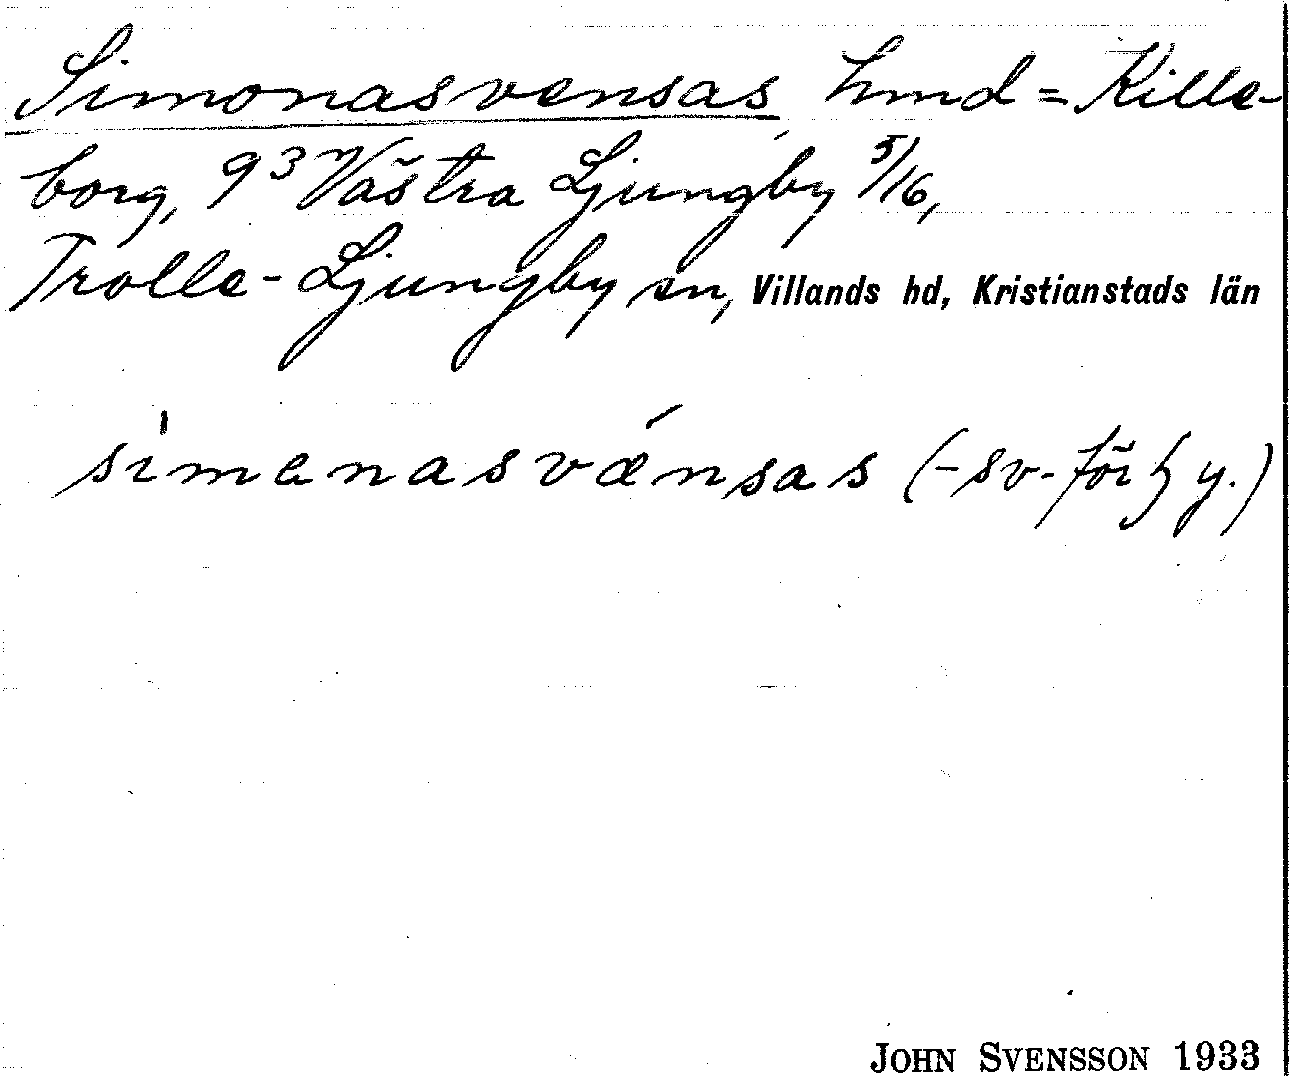 Simonasvensas hmd = Kille-
borg, 9³ Västra Ljungby 5/16,
Trolle-Ljungby sn, Villands hd, Kristianstads län
simanasvænsas (-sv- för y.)
JOHN SVENSSON 1933